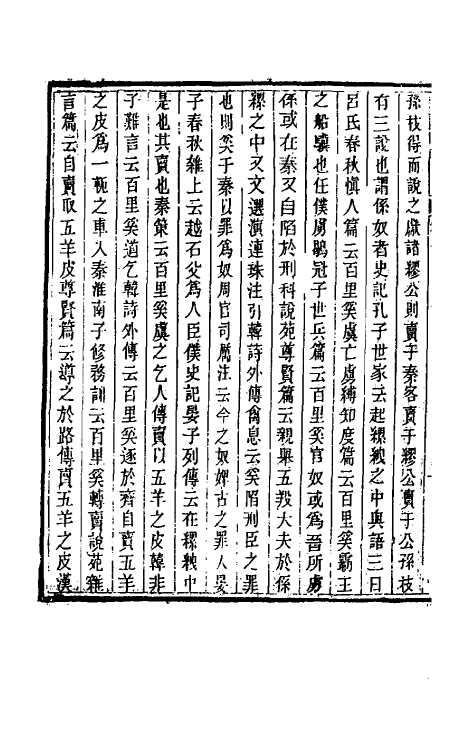 孫枝得而說之獻諸繆公則賣于秦客賣于繆公賣于公孫枝
有三說也謂係奴者史記孔子世家云起纍紲之中與語三日
呂氏春秋慎人篇云百里奚虞亡虜縛知度篇云百里奚霸王
之船驥也任僕虜鶡冠子世兵篇云百里奚官奴或為晉所虜
係或在秦又自陷於刑科說苑尊賢篇云親舉五羖大夫於係
縲之中又文選演連珠注引韓詩外傳禽息云奚陷刑臣之罪
也則奚于秦以罪為奴周官司厲注云今之奴婢古之罪人晏
子春秋雜上云越石父為人臣僕史記晏子列傳云在縲紲中
是也其賣也秦策云百里奚虞之乞人傳賣以五羊之皮韓非
子難言云百里奚道乞韓詩外傳云百里奚逐於齊自賣五羊
之皮為一軛之車入秦淮南子修務訓云百里奚轉賣說苑雜
言篇云自賣取五羊皮尊賢篇云導之於路傳賣五羊之皮漢